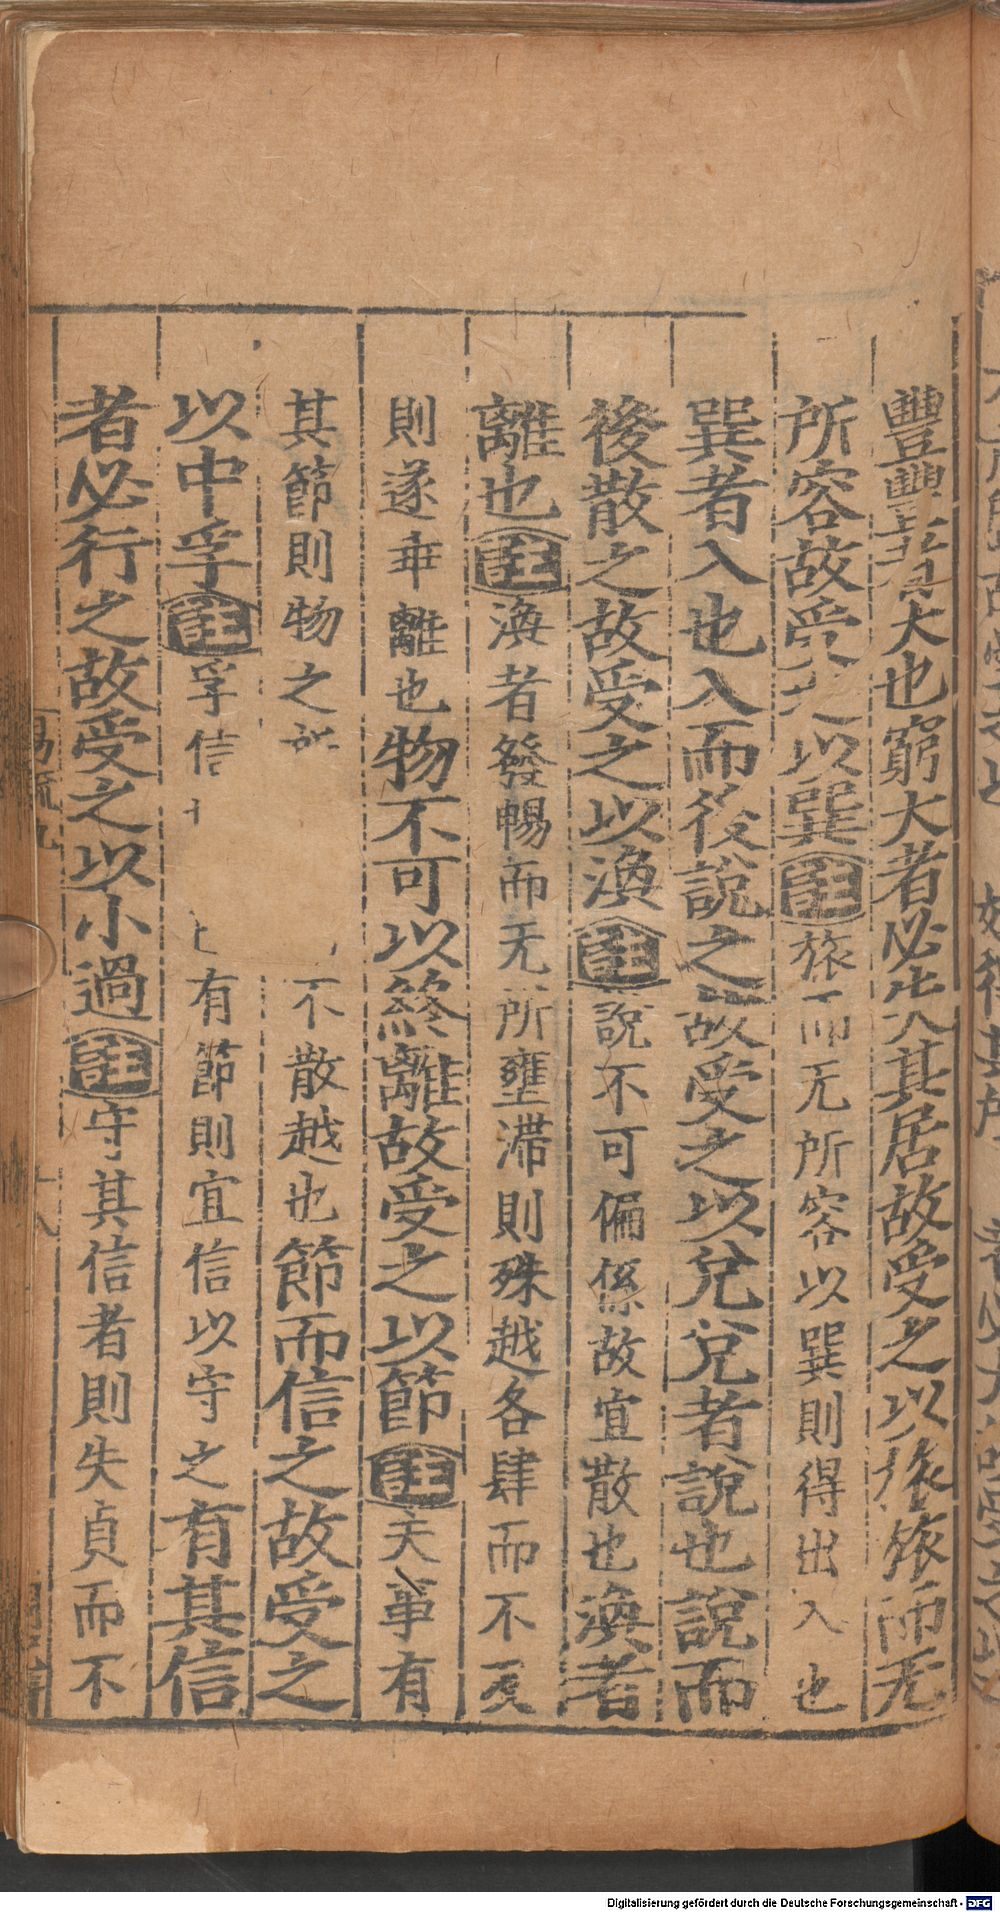 豐豐者大也窮大者必失其居故受之以旅旅而无
所容故受之以巽註旅而无所容以巽則得出入也
巽者入也入而後說之故受之以兌兌者說也說而
後散之故受之以渙註說不可偏係故宜散也渙者
離也註渙者發暢而无所壅滯則殊越各肆而不反
則遂乖離也物不可以終離故受之以節註夫事有
其節則物之 不散越也節而信之故受之
以中孚註孚信 有節則宜信以守之有其信
者必行之故受之以小過註守其信者則失貞而不
Digitalisierung gefördert durch die Deutsche Forschungsgemeinschaft - DFG